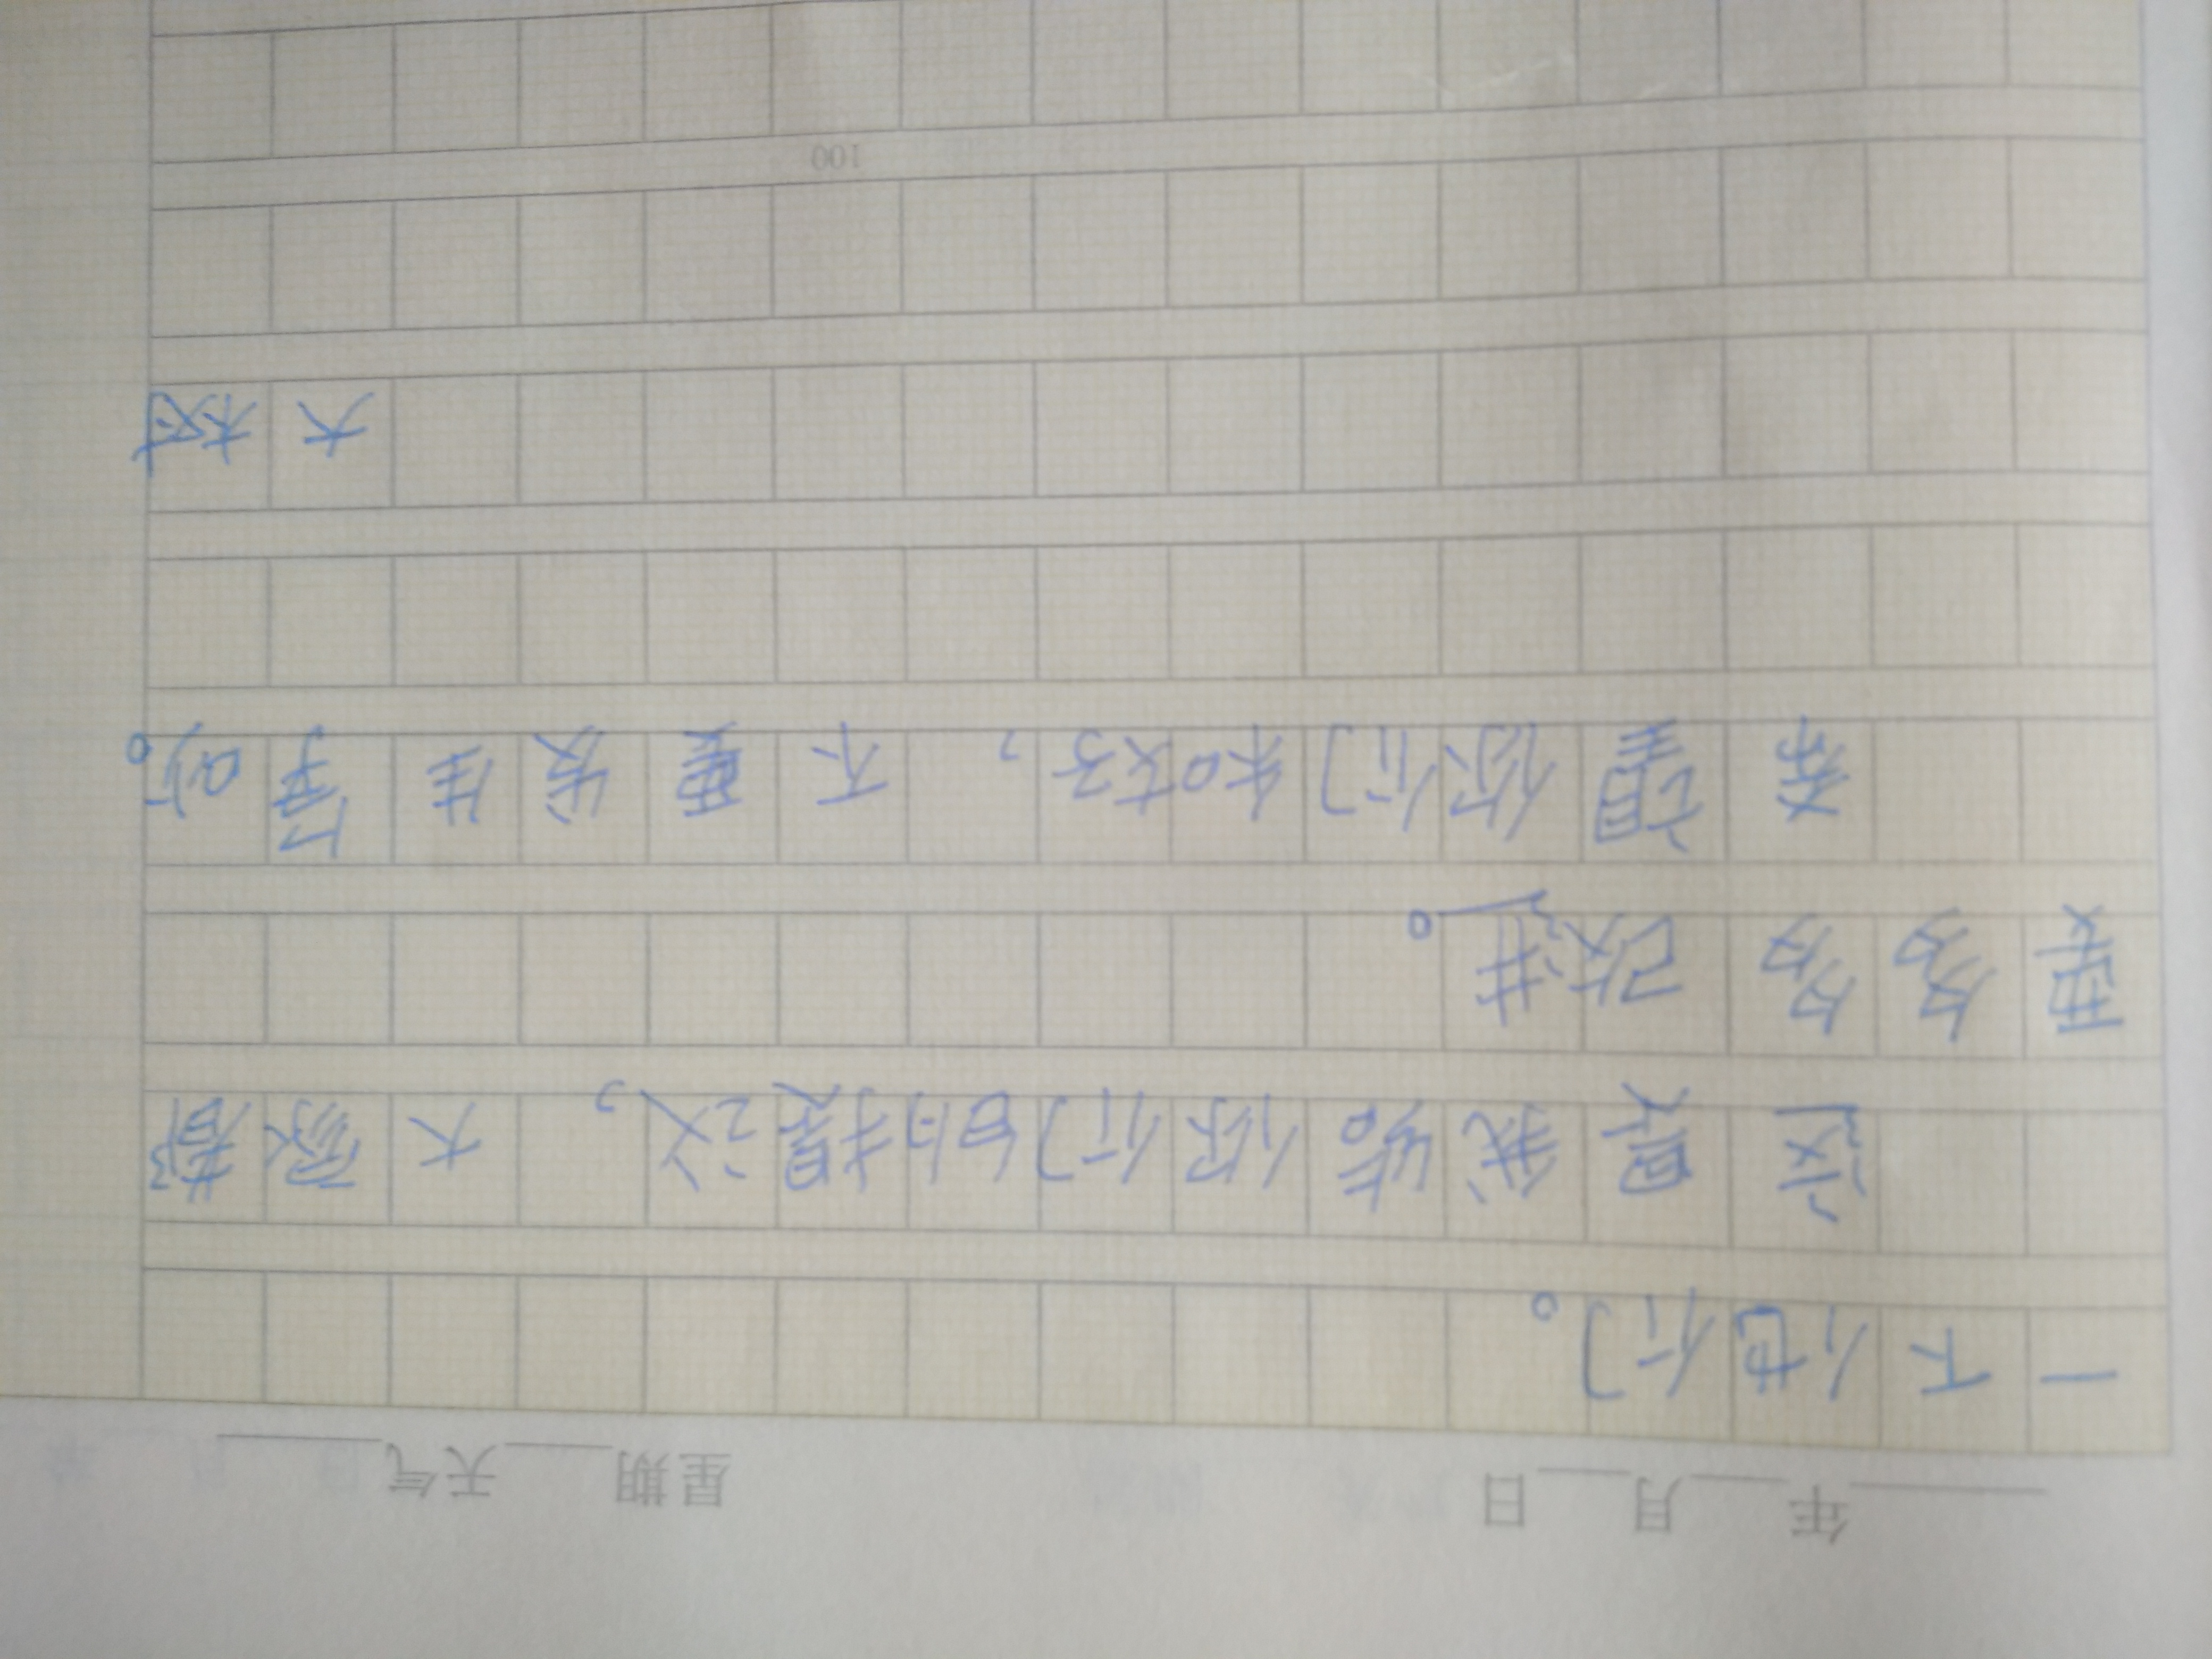 ____年___月___日 星期____天气______
一下他们。
这是我给你们的提议，大家都
要多多改进。
希望你们和好，不要发生争吵。
大树
100